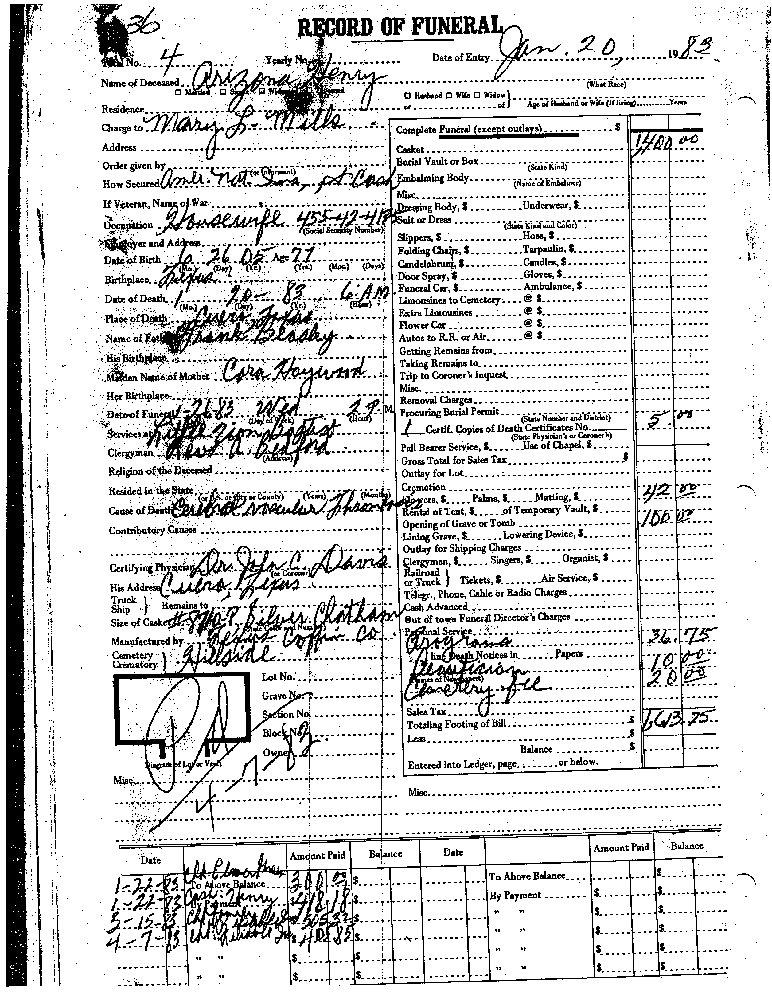 36
RECORD OF FUNERAL
No. 4 Yearly No. Date of Entry Jan. 20, 1983
Name of Deceased Arizona Henry
(What Race)
Husband Wife Widow
Residence or of Age of Husband or Wife (if living) Years
Charge to Mary L. Mills
Complete Funeral (except outlays) $
Address
Casket 1400 00
Order given by
Burial Vault or Box
(State Kind)
How Secured Amer. Nat. Ins, pt Cash
Embalming Body
(Name of Embalmer)
If Veteran, Name of War
Misc.
Dressing Body, $ Underwear, $
Occupation Housewife 455-42-
(Social Security Number)
Suit or Dress
(State Kind and Color)
Employer and Address
Slippers, $ Hose, $
Date of Birth 6 26 05 Age 77
(Mo.) (Day) (Yr.) (Yrs.) (Mos.) (Days)
Folding Chairs, $ Tarpaulin, $
Candelabrum, $ Candles, $
Birthplace Texas
Door Spray, $ Gloves, $
Date of Death 1 20 - 83 6 AM
Funeral Car, $ Ambulance, $
Limousines to Cemetery @ $
Place of Death Cuero Texas
Extra Limousines @ $
Name of Father Frank
Flower Car @ $
Autos to R.R. or Air @ $
His Birthplace
Getting Remains from
Maiden Name of Mother Cora Haywood
Taking Remains to
Trip to Coroner's Inquest
Her Birthplace
Misc.
Removal Charges
Date of Funeral 1-26 83 Wed 2 P. M.
Procuring Burial Permit
(State Number and District)
Services at Little Zion Baptist
1 Certif. Copies of Death Certificates No. 5 00
(State Physician's or Coroner's)
Clergyman Rev. A.
(Address)
Pall Bearer Service, $ Use of Chapel, $
Religion of the Deceased
Gross Total for Sales Tax $
Outlay for Lot
Resided in the State
(or U.S. or City or County) (Years) (Months)
Cremation
Flowers, $ Palms, $ Matting, $ 42 00
Cause of Death Cerebral Vascular
Rental of Tent, $ of Temporary Vault, $
Contributory Causes
Opening of Grave or Tomb 100 00
Lining Grave, $ Lowering Device, $
Outlay for Shipping Charges
Certifying Physician Dr. John C. Davis
(or Coroner)
Clergymen, $ Singers, $ Organist, $
His Address Cuero, Texas
Railroad or Truck } Tickets, $ Air Service, $
Truck Ship } Remains to
Telegr., Phone, Cable or Radio Charges
Size of Casket Silver Clotham
Cash Advanced
Out of town Funeral Director's Charges
Manufactured by Coffin Co
Personal Service
Programs 36 75
Cemetery Crematory } Hillside
Line Death Notices in Papers
Beautician 10 00
Cemetery Fee 20 00
Lot No.
Grave No.
Section No.
Block No.
Owner
Sales Tax
Totaling Footing of Bill $ 1613.75
Less
Balance $
Diagram of Lot or Vault
Entered into Ledger, page or below.
Pd
4-7-83
Misc.
Misc.
Date Amount Paid Balance Date Amount Paid Balance
1-22-83 To Above Balance $ 300 00 $ To Above Balance $ $
1-22-83 $ 418 18 $ By Payment $ $
3-15-83 $ $ " " $ $
4-7-83 $ 405 85 $ " " $ $
" " $ $ " " $ $
" " $ $ " " $ $